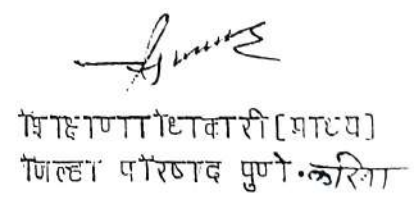 शिक्षणाधिकारी [माध्य]
जिल्हा परिषद पुणे.करिता